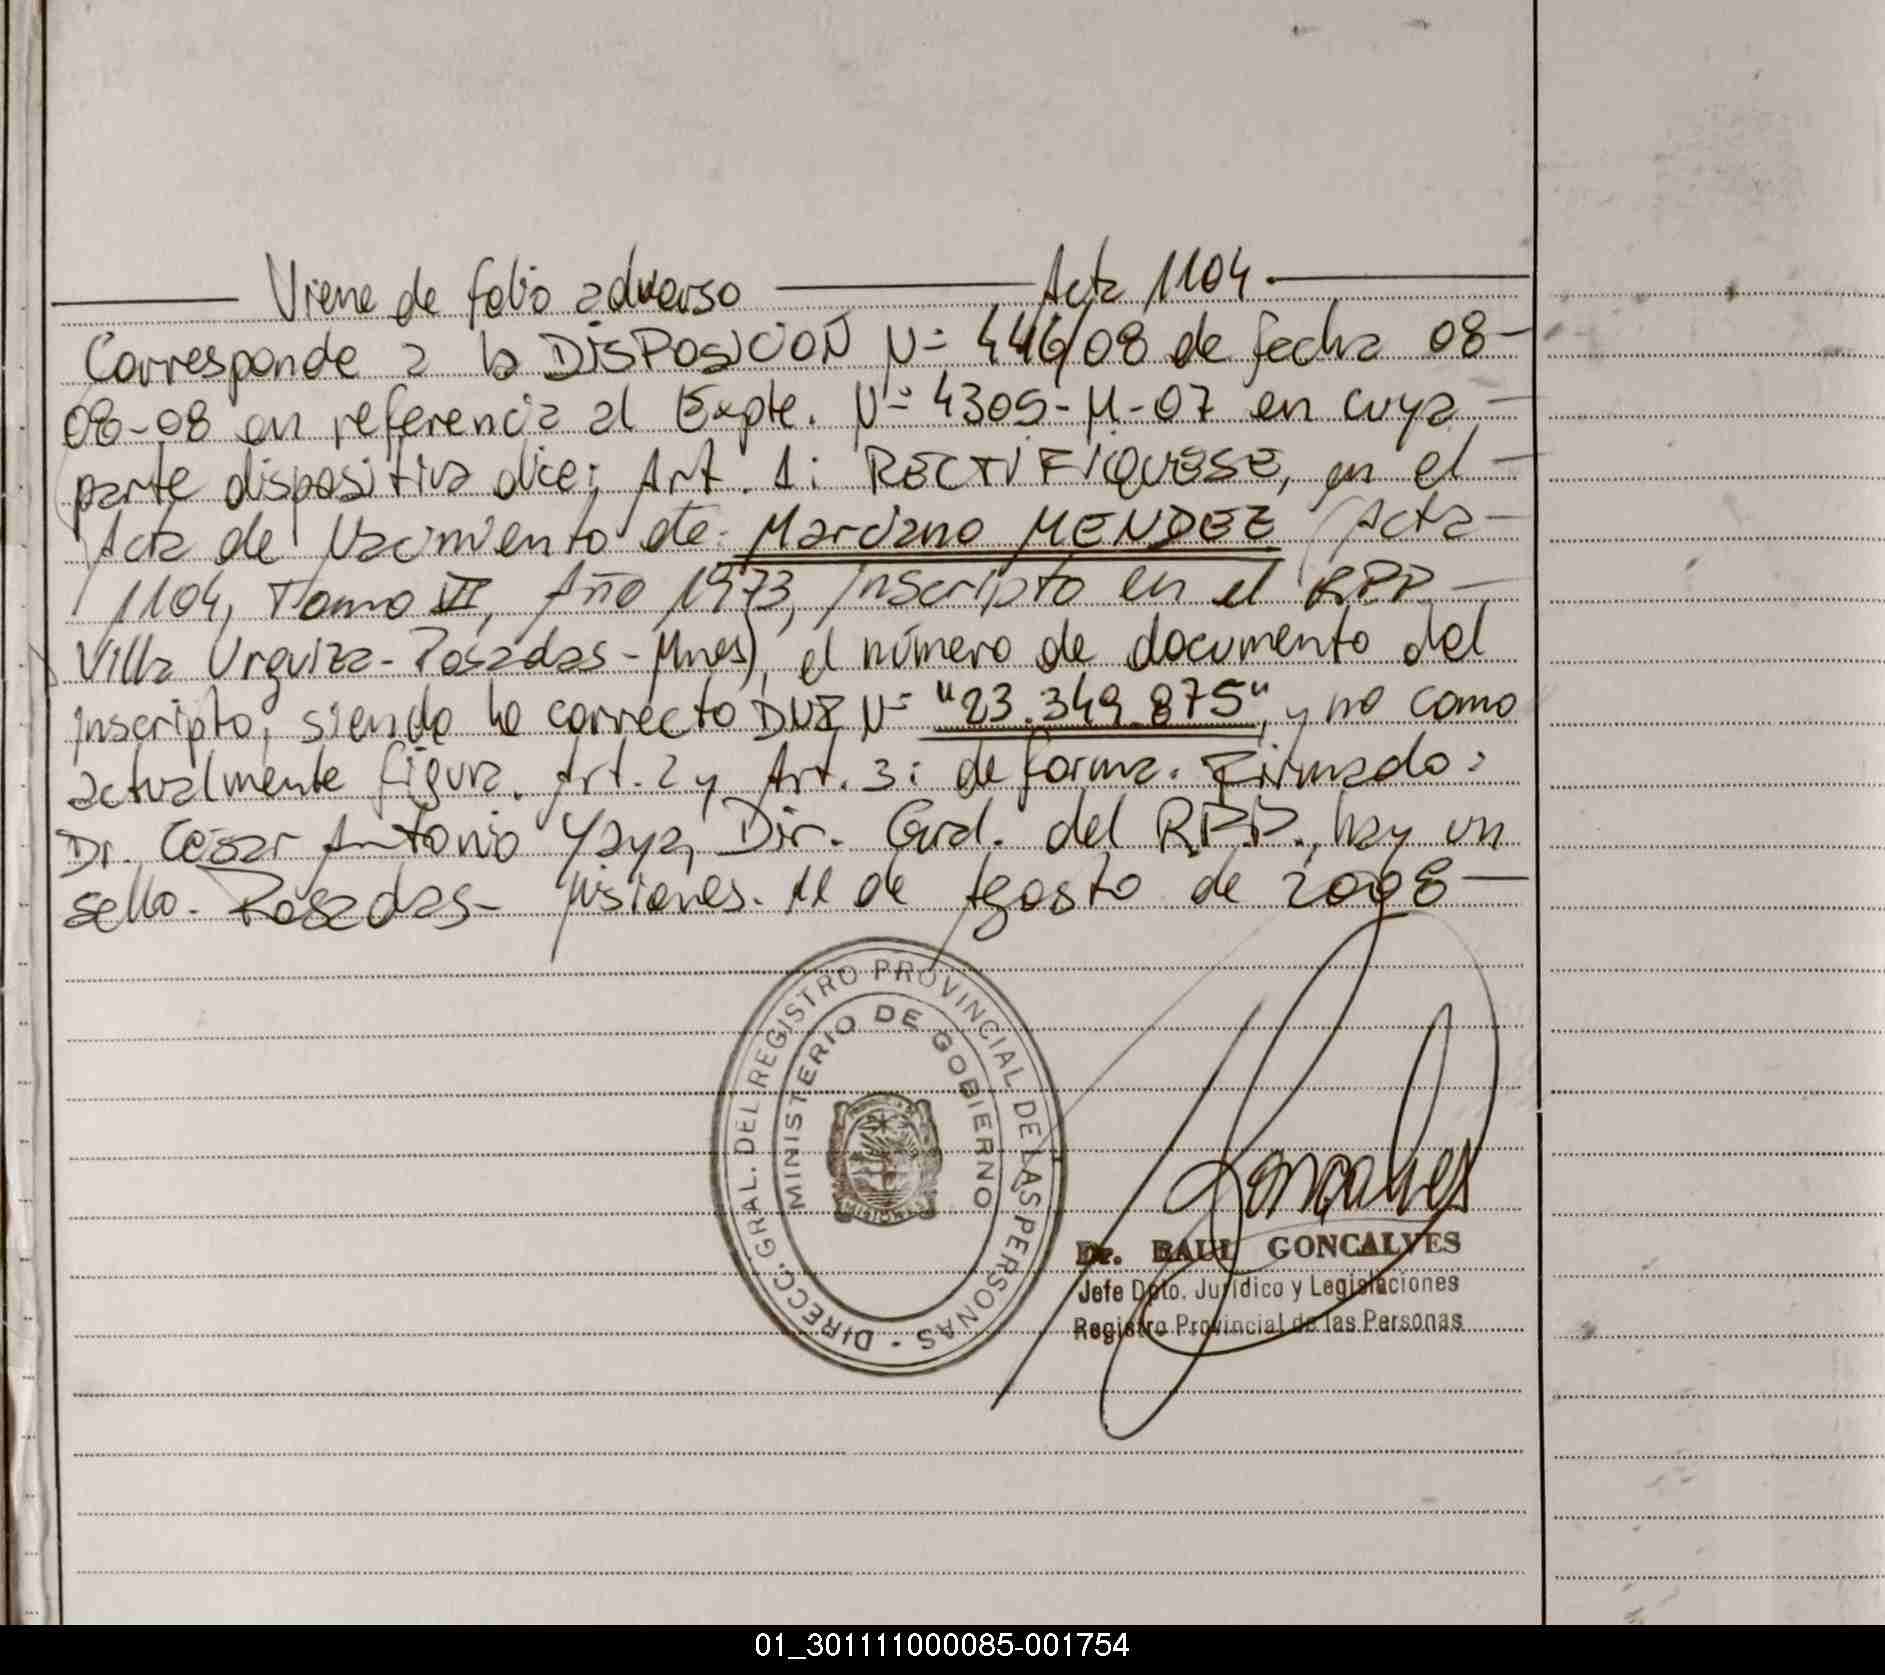 Viene de folio adverso Acta 1104.
Corresponde a la DISPOSICION N= 446/08 de fecha 08-
08-08 en referencia al Expte. N= 4305-M-07 en cuya
parte dispositiva dice: Art. 1: RECTIFIQUESE, en el
Acta de Nacimiento de: Marciano MENDEZ (Acta
1104, Tomo VI, Año 1973, inscripto en el RPP
Villa Urquiza-Posadas-Mnes), el número de documento del
inscripto, siendo lo correcto DNI N= "23.349.875", y no como
actualmente figura. Art. 2 y Art. 3: de forma. Firmado:
Dr. César Antonio Yaya, Dir. Gral. del RPP., hay un
sello. Posadas- Misiones. 11 de Agosto de 2008
DIRECC. GRAL. DEL REGISTRO PROVINCIAL DE LAS PERSONAS -
MINISTERIO DE GOBIERNO
MISIONES
Goncalves
Dr. RAUL GONCALVES
Jefe Dpto. Jurídico y Legislaciones
Registro Provincial de las Personas
01_301111000085-001754